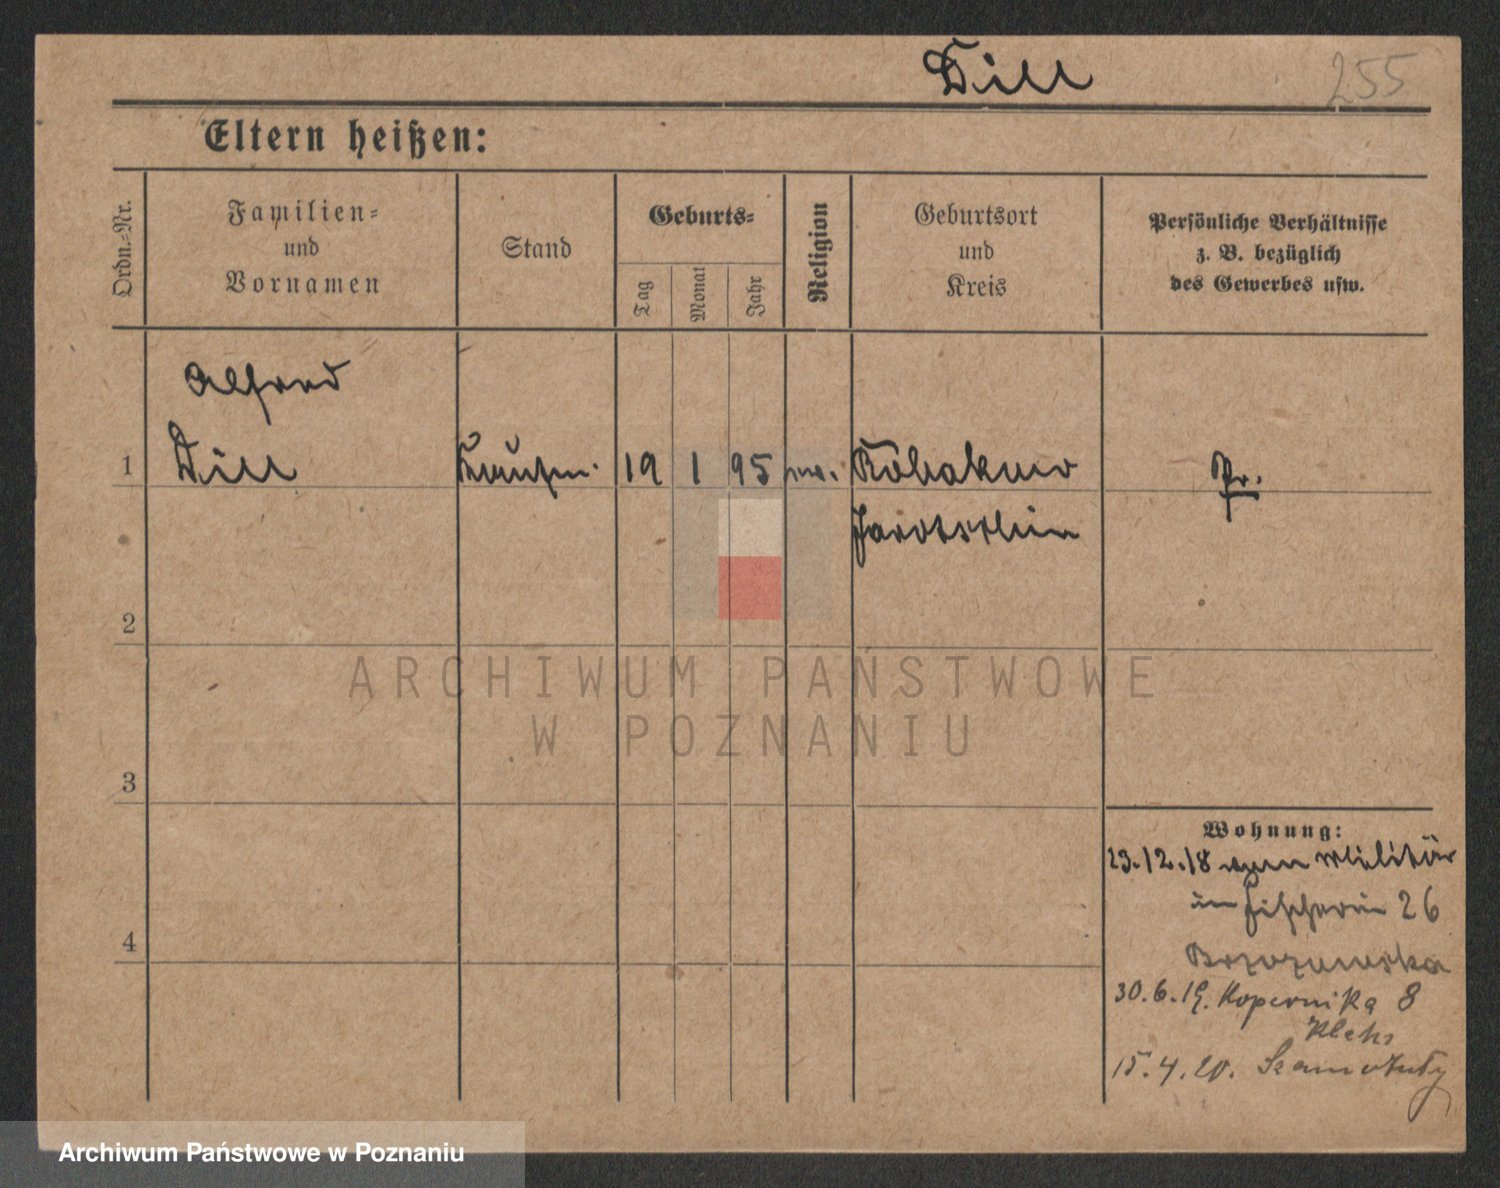 Dill
255
Eltern heißen:
Ordn.-Nr.
Familien-
und
Vornamen
Stand
Geburts-
Tag
Monat
Jahr
Religion
Geburtsort
und
Kreis
Persönliche Verhältnisse
z. B. bezüglich
des Gewerbes usw.
Alfred
1 Dill Kaufm. 19 1 95 Pr.
Jarotschin
2
3
4
Wohnung:
23.12.18 Militär
Fischerei 26
30.6.19. Kopernika 8
15.4.20. Szamotuły
ARCHIWUM PAŃSTWOWE
W POZNANIU
Archiwum Państwowe w Poznaniu